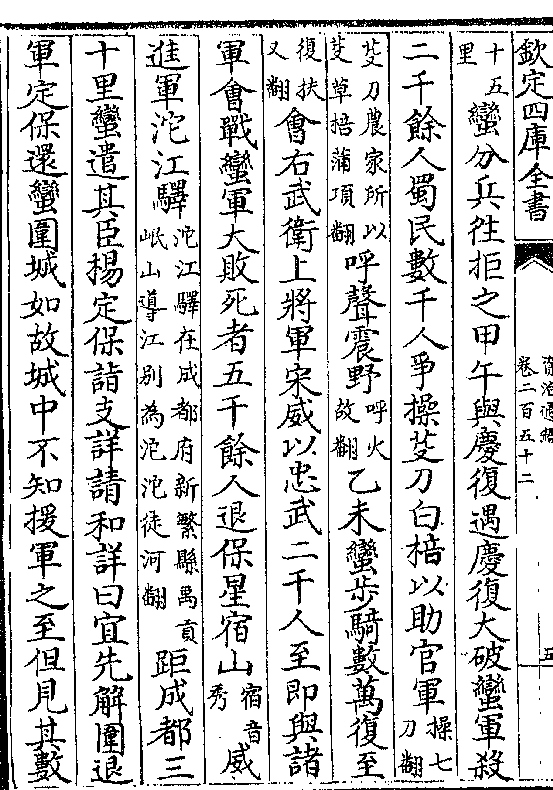 欽定四庫全書
資治通鑑
卷二百五十二
五
十五里蠻分兵往拒之甲午與慶復遇慶復大破蠻軍殺
二千餘人蜀民數千人爭操芟刀白棓以助官軍操七刀翻
芟刀農家所以芟草棓蒲項翻呼聲震野呼火故翻乙未蠻步騎數萬復至
復扶又翻會右武衛上將軍宋威以忠武二千人至即與諸
軍會戰蠻軍大敗死者五千餘人退保星宿山宿音秀威
進軍沱江驛沱江驛在成都府新繁縣禹貢岷山導江别為沱沱徒河翻距成都三
十里蠻遣其臣楊定保詣支詳請和詳曰宜先解圍退
軍定保還蠻圍城如故城中不知援軍之至但見其數